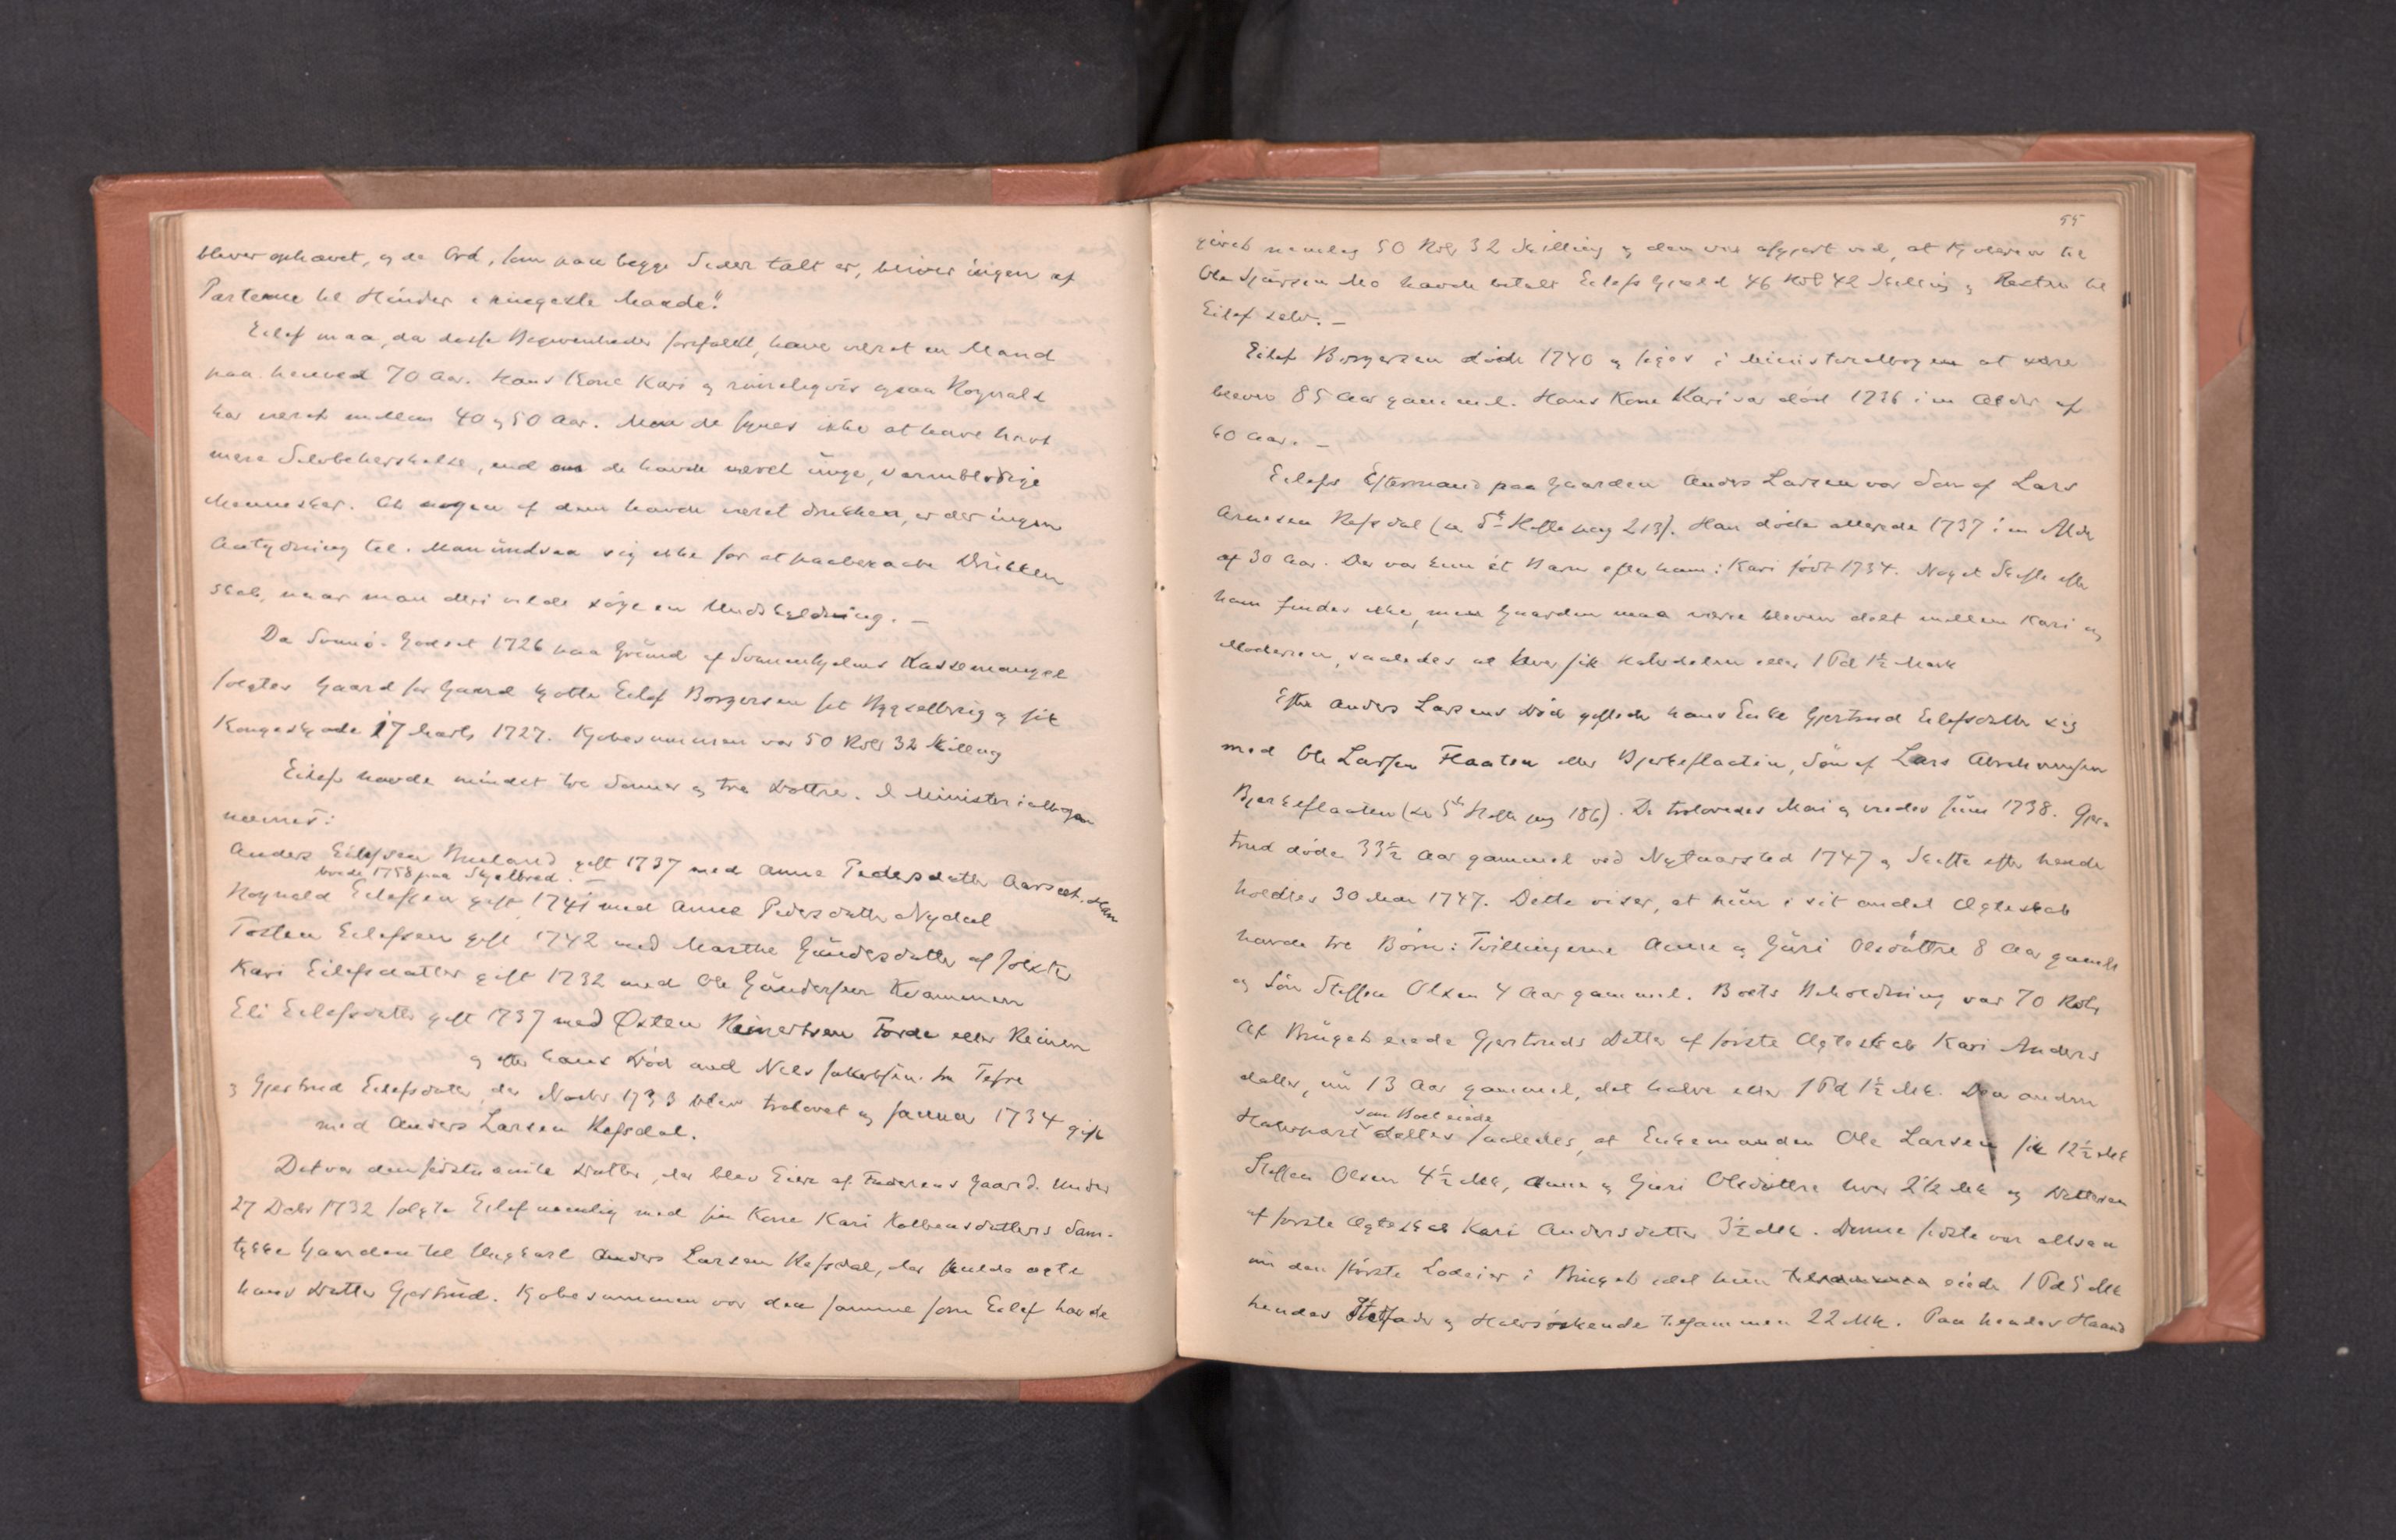 bliver ophævet, og de Ord, som paa begge Sider talt er, bliver ingen af
Parterne til Hinder i ringeste Maade."
Eilef maa, da disse Begivenheder forefaldt, have været en Mand
paa henved 70 Aar. Hans Kone Kari og rimeligvis ogsaa Rognald
har været mellem 40 og 50 Aar. Men de synes ikke at have havt
mere Selvbeherskelse, end om de havde været unge, varmblodige
Mennesker. At nogen af dem havde været drukken, er der ingen
Antydning til. Man undsaa sig ikke for at paaberaabe Drukken
skab, naar man deri vilde søge en Undskyldning. —
Da Sunnø-Godset 1726 paa Grund af Svanenhjelms Kassemangel
solgtes Gaard for Gaard kjøbte Eilef Borgersen sit Bygselbrug og fik
Kongeskjøde 17 Marts 1727. Kjøbesummen var 50 Rdlr 32 Skilling
Eilef havde mindst tre Sønner og tre Døttre. I Ministerialbogen
nævnes:
Anders Eilefsen gift 1737 med Anne Pedersdatter Aarseth. Han
boede 1758 paa Skjelbred. —
Rognald Eilefsen gift 1741 med Anne Pedersdatter Nydal
Tosten Eilefsen gift 1742 med Marthe Gundersdatter af
Kari Eilefsdatter gift 1732 med Ole Gundersen Kvammen
Eli Eilefsdatter gift 1737 med Østen Reinertsen Førde eller Reinen
og efter hans Død med Nels Jakobsen fra
og Gjertrud Eilefsdatter, der Novbr 1733 blev trolovet og Januar 1734 gift
med Anders Larsen Refsdal.
Det var den sidstnævnte Datter, der blev Eier af Faderens Gaard. Under
27 Decbr 1732 solgte Eilef nemlig med sin Kone Kari Kolbensdatters Sam-
tykke Gaarden til Ungkarl Anders Larsen Refsdal, der skulde ægte
hans Datter Gjertrud. Kjøbesummen var den samme som Eilef havde
55
givet nemlig 50 Rdlr 32 Skilling og den var afgjort ved, at Kjøberen til
Ole Sjursen Mo havde betalt Eilefs Gjæld 46 Rdl 42 Skilling og Resten til
Eilef selv. —
Eilef Borgersen døde 1740 og siges i Ministerialbogen at være
bleven 85 Aar gammel. Hans Kone Kari var død 1736 i en Alder af
60 Aar. —
Eilefs Eftermand paa Gaarden Anders Larsen var Søn af Lars
Arnesen Refsdal (se 5te Hefte pag 213). Han døde allerede 1737 i en Alder
af 30 Aar. Der var kun et Barn efter ham: Kari født 1734. Noget Skifte efter
ham findes ikke, men Gaarden maa være bleven delt mellem Kari og
Moderen, saaledes at hver fik Halvdelen eller 1 Pd 1½ Mark
Efter Anders Larsens Død giftede hans Enke Gjertrud Eilefsdatter sig
med Ole Larsen Flaaten eller Bjerkeflaaten, Søn af Lars
Bjerkeflaaten (se 5te Hefte pag 186). De trolovedes Mai og viedes Juni 1738. Gjer-
trud døde 33½ Aar gammel ved Nytaarstid 1747 og Skifte efter hende
holdtes 30 Mai 1747. Dette viser, at hun i sit andet Ægteskab
havde tre Børn: Tvillingerne Anne og Guri Olsdøttre 8 Aar gamle
og Søn Steffen Olsen 4 Aar gammel. Boets Beholdning var 70 Rdlr
Af Bruget eiede Gjertruds Datter af første Ægteskab Kari Anders
datter, nu 13 Aar gammel, det halve eller 1 Pd 1½ Mk. Den anden
som Boet eiede
Halvpart deltes saaledes, at Enkemanden Ole Larsen fik 12½ Mk
Steffen Olsen 4½ Mk, Anne og Guri Olsdøttre hver 2¼ Mk og Datteren
af første Ægteskab Kari Andersdatter 3½ Mk. Denne sidste var altsaa
nu den største Lodeier i Bruget idet hun eiede 1 Pd 5 Mk
hendes Stedfader og Halvsøskende tilsammen 22 Mk. Paa hendes Haand